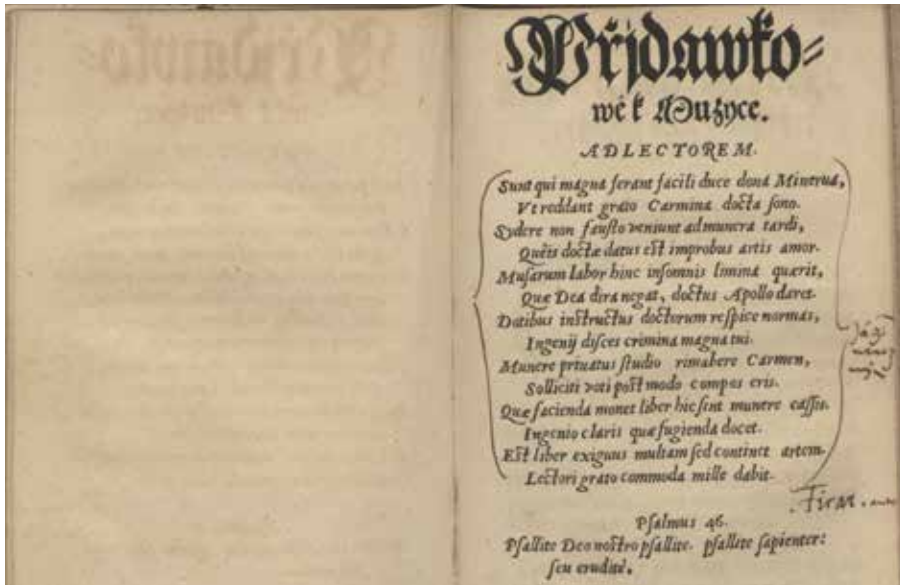 Přjdawko⸗
wé k Muzyce.
AD LECTOREM.
Sunt qui magna ferant facili duce dona Minerua,
Vt reddant grato Carmina docta sono.
Sydere non fausto veniunt ad munera tardi,
Queîs doctæ datus est improbus artis amor.
Musarum labor hinc insomnis limina quærit,
Quæ Dea dira negat, doctus Apollo daret.
Dotibus instructus doctorum respice normas,
Ingenij disces crimina magna tui.
Munere priuatus studio rimabere Carmen,
Solliciti voti post modo compos eris.
Quæ facienda monet liber hic sint munere cassis.
Ingenio claris quæ fugienda docet.
Est liber exiguus multam sed continet artem.
Lectori grato commoda mille dabit.
Psalmus 46.
Psallite Deo nostro psallite. psallite sapienter:
seu eruditè.